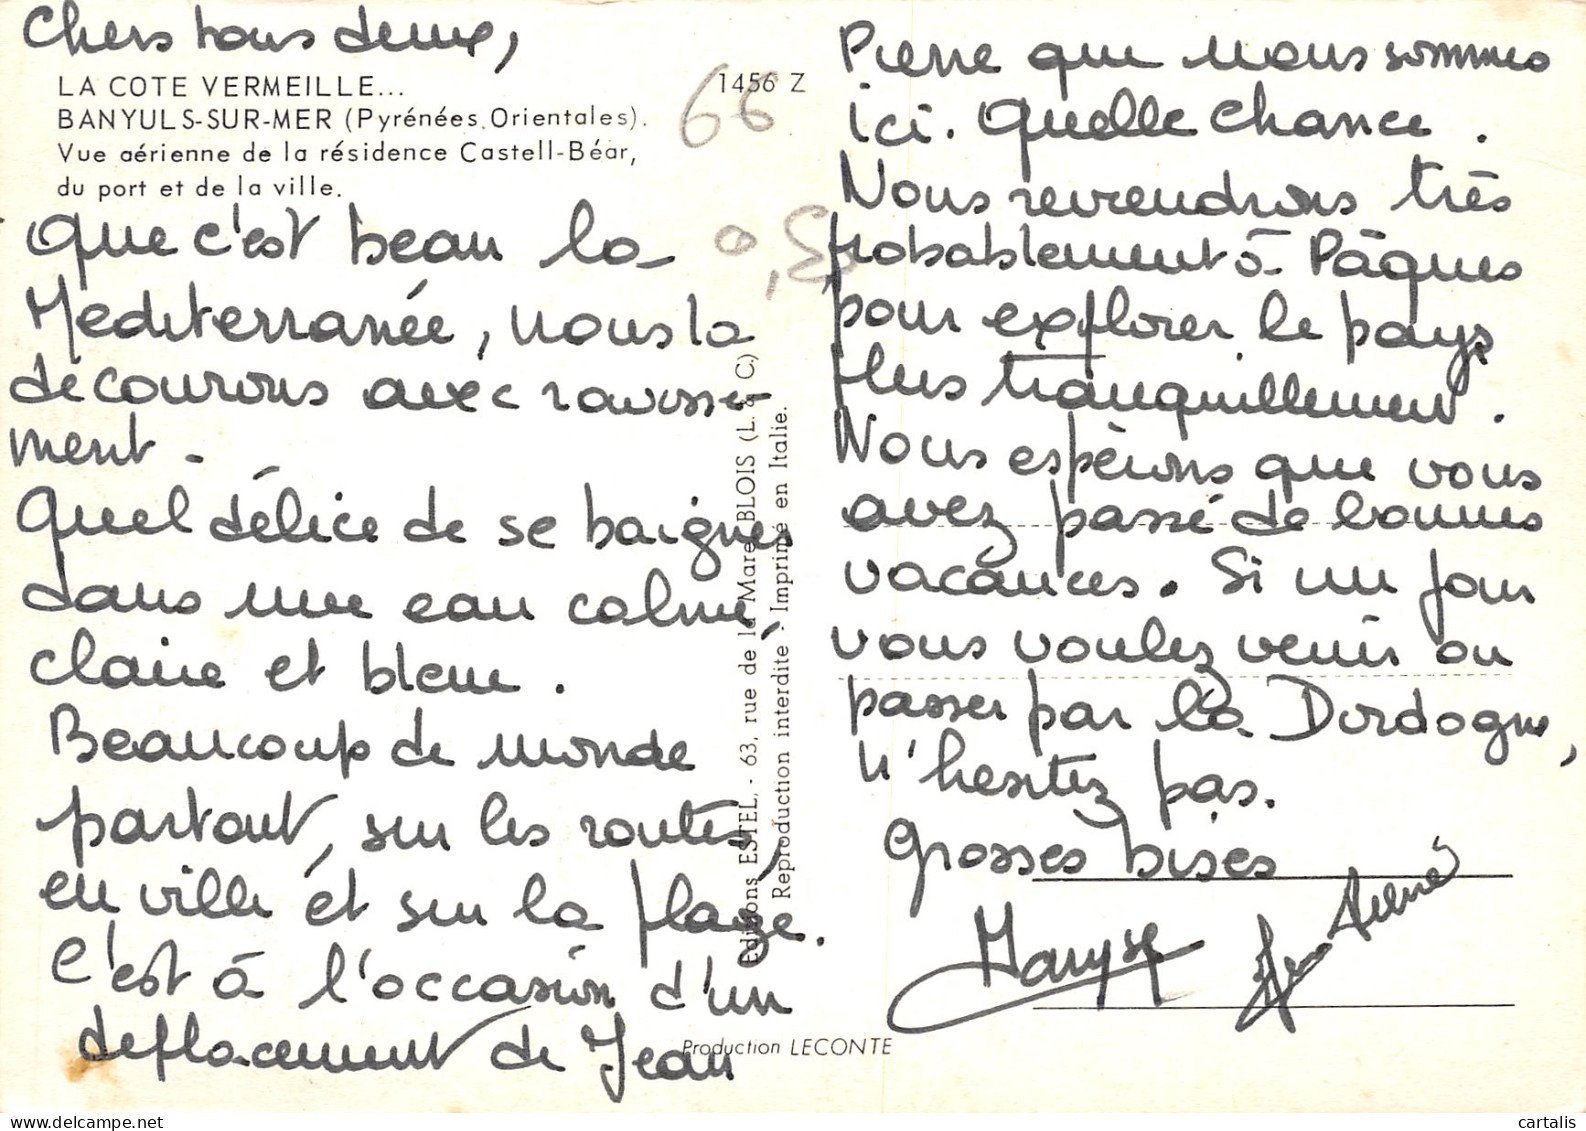 Chers tous deux,
LA COTE VERMEILLE...
BANYULS-SUR-MER (Pyrénées Orientales).
Vue aérienne de la résidence Castell-Béar,
du port et de la ville.
1456 Z
66
0,80
Que c'est beau la
Mediterranée, nous la
découvrons avec ravisse-
ment.
Quel délice de se baigner
dans une eau calme,
claire et bleue.
Beaucoup de monde
partout, sur les routes,
en ville et sur la plage.
C'est à l'occasion d'un
deplacement de Jean
Pierre que nous sommes
ici. Quelle chance.
Nous reviendrons très
probablement à Pâques
pour explorer le pays
plus tranquillement.
Nous espérons que vous
avez passé de bonnes
vacances. Si un jour
vous voulez venir ou
passer par la Dordogne,
n'hesitez pas.
Grosses bises
Maryse Jean Pierre
Editions ESTEL, - 63, rue de la Mare, BLOIS (L. & C.)
Reproduction interdite - Imprimé en Italie.
Production LECONTE
cartalis